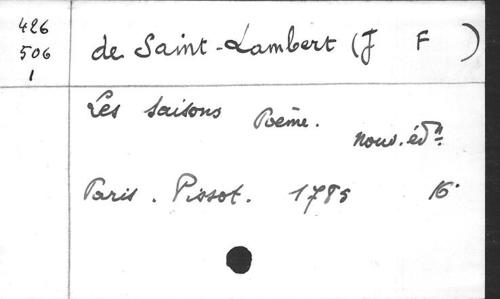 426
506
1
de Saint-Lambert (J F )
Les Saisons Poème. nouv. édn
Paris. Pissot. 1785 16°